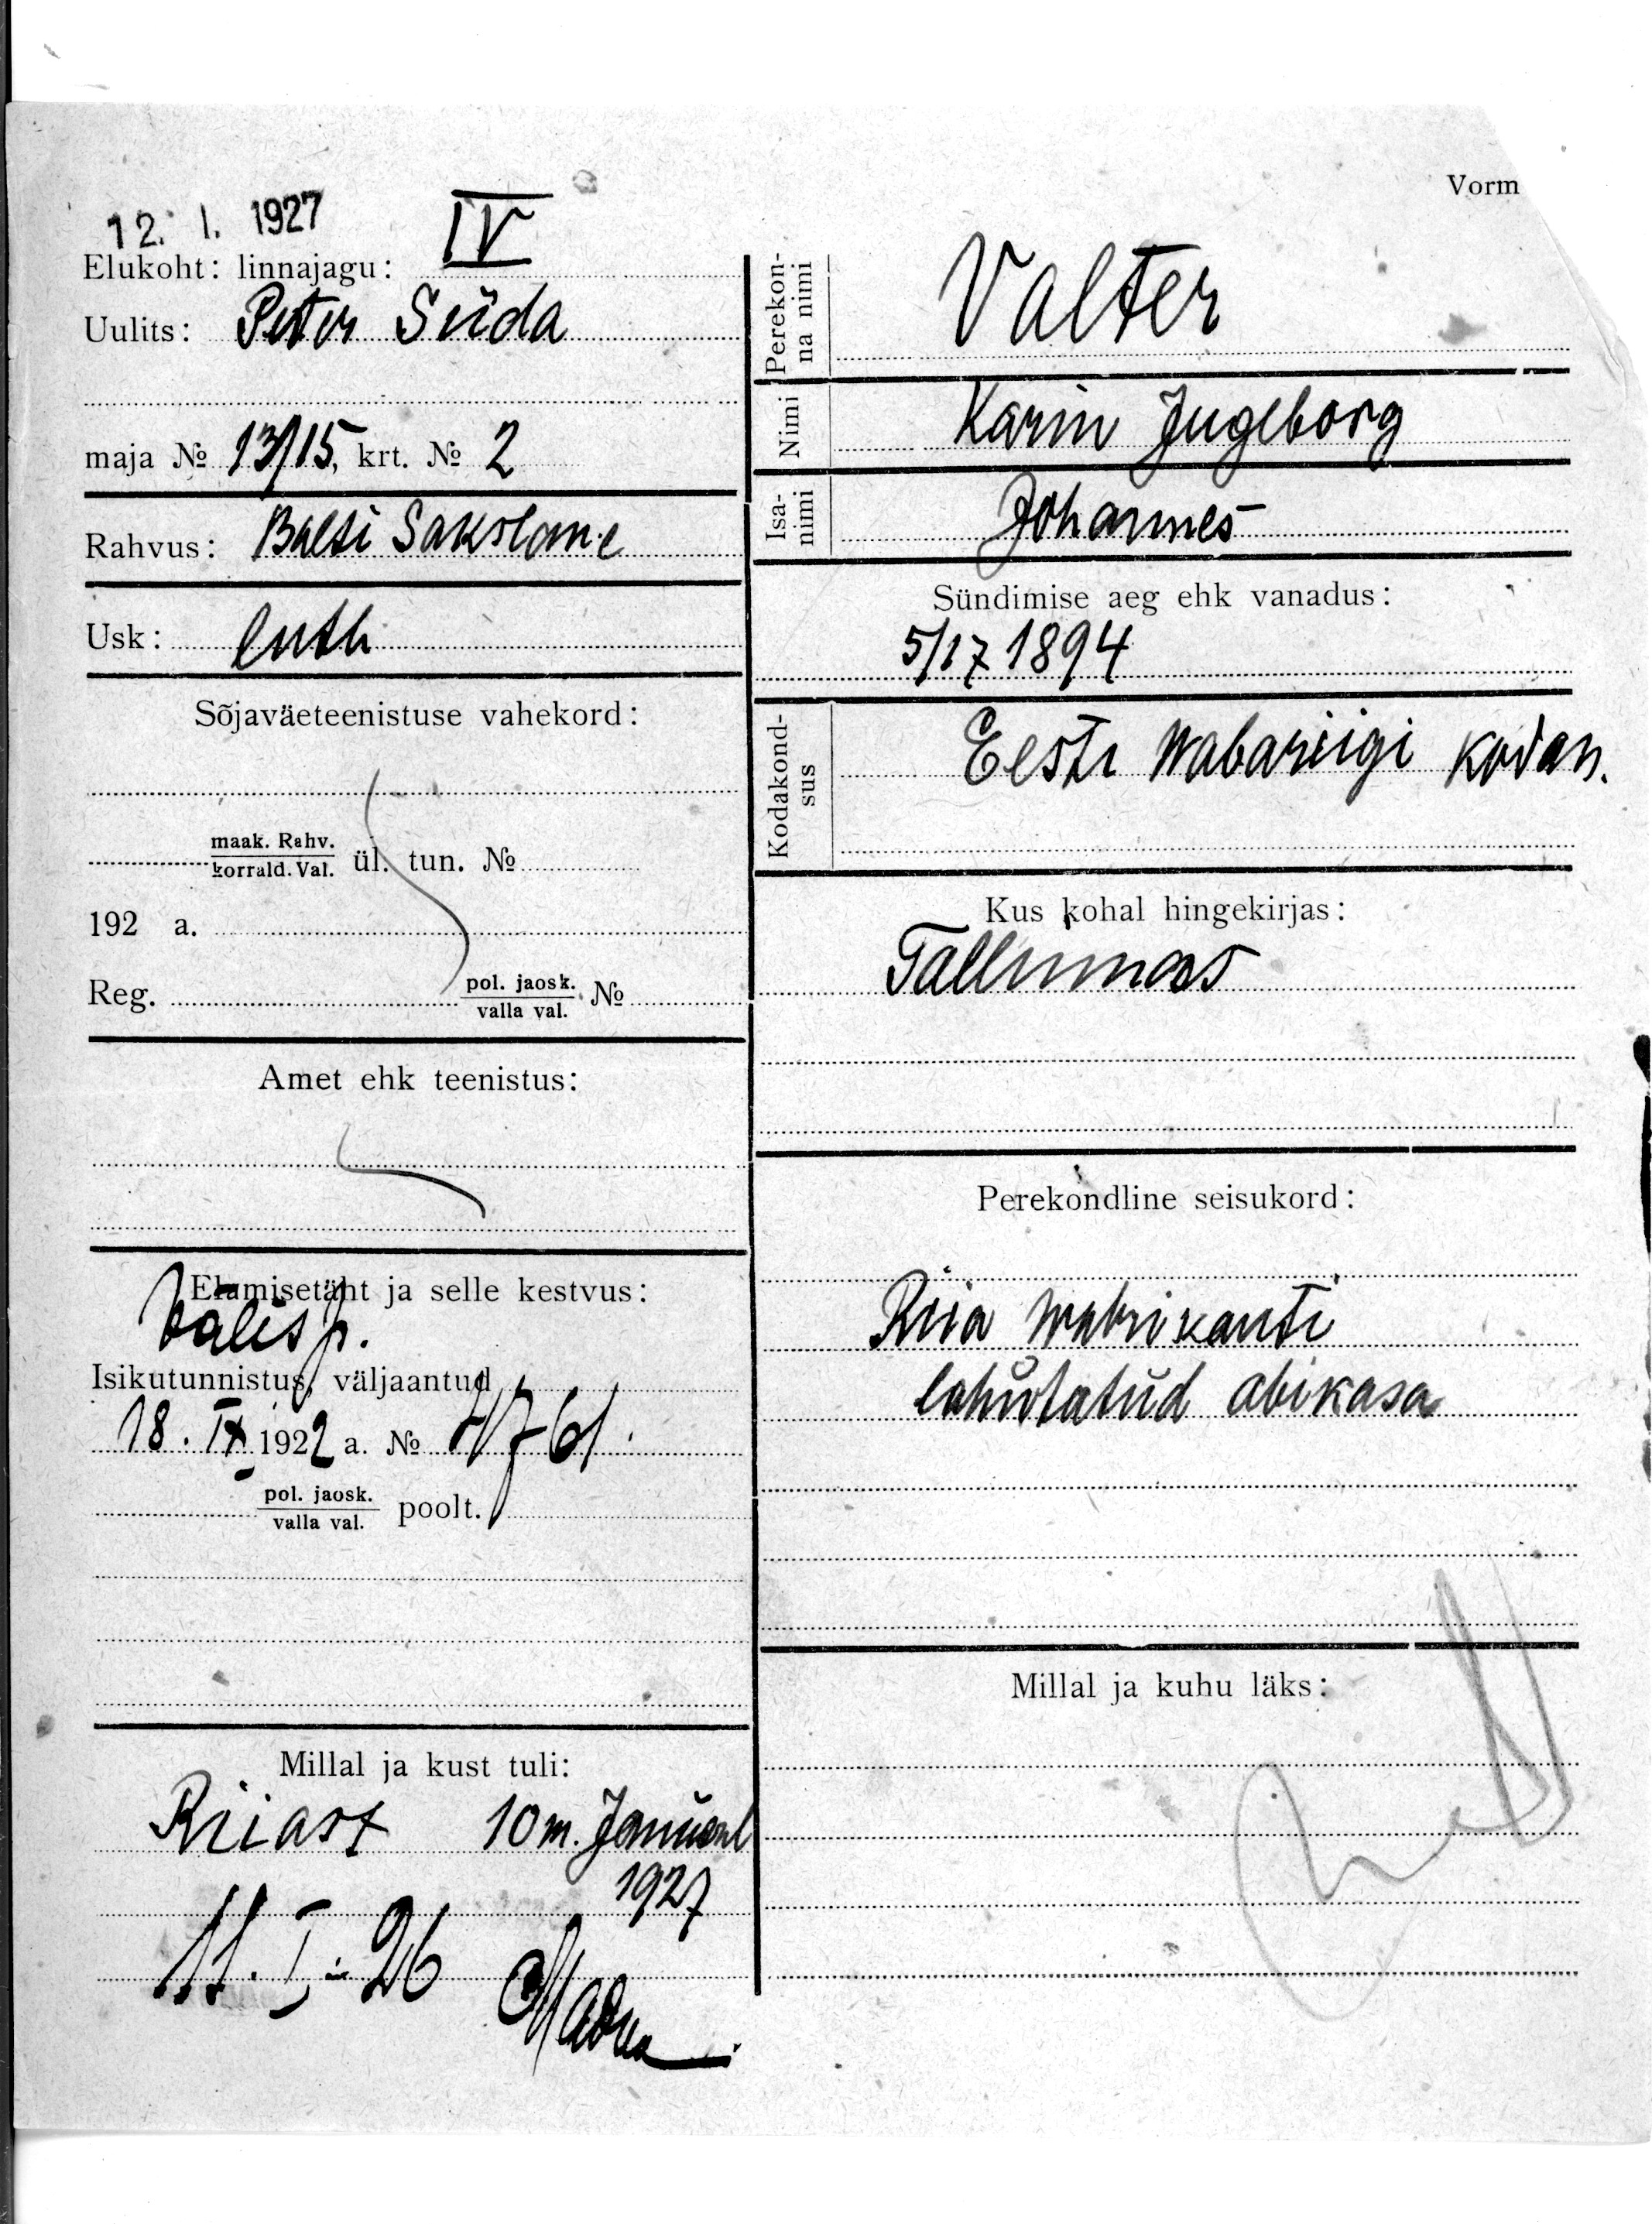 Vorm
12. I. 1927
Elukoht: linnajagu: IV
Uulits: Peter Süda
maja № 13/15, krt. № 2
Rahvus: Balti Sakslane
Usk: luth
Sõjaväeteenistuse vahekord:
maak. Rahv.
korrald. Val. ül. tun. №
192 a.
Reg. pol. jaosk. №
valla val.
Amet ehk teenistus:
Elamisetäht ja selle kestvus:
välisp.
Isikutunnistus, väljaantud
18. IX 1922 a. №
pol. jaosk.
valla val. poolt.
Millal ja kust tuli:
Riiast 10 m. Januaril
1927
11. I - 26
Perekon-
na nimi
Valter
Nimi Karin Jngeborg
Isa-
nimi
Johannes
Sündimise aeg ehk vanadus:
1894
Kodakond-
sus
Eesti Wabariigi kodan.
Kus kohal hingekirjas:
Tallinnas
Perekondline seisukord:
Riia wabrikanti
lahutatud abikasa
Millal ja kuhu läks: